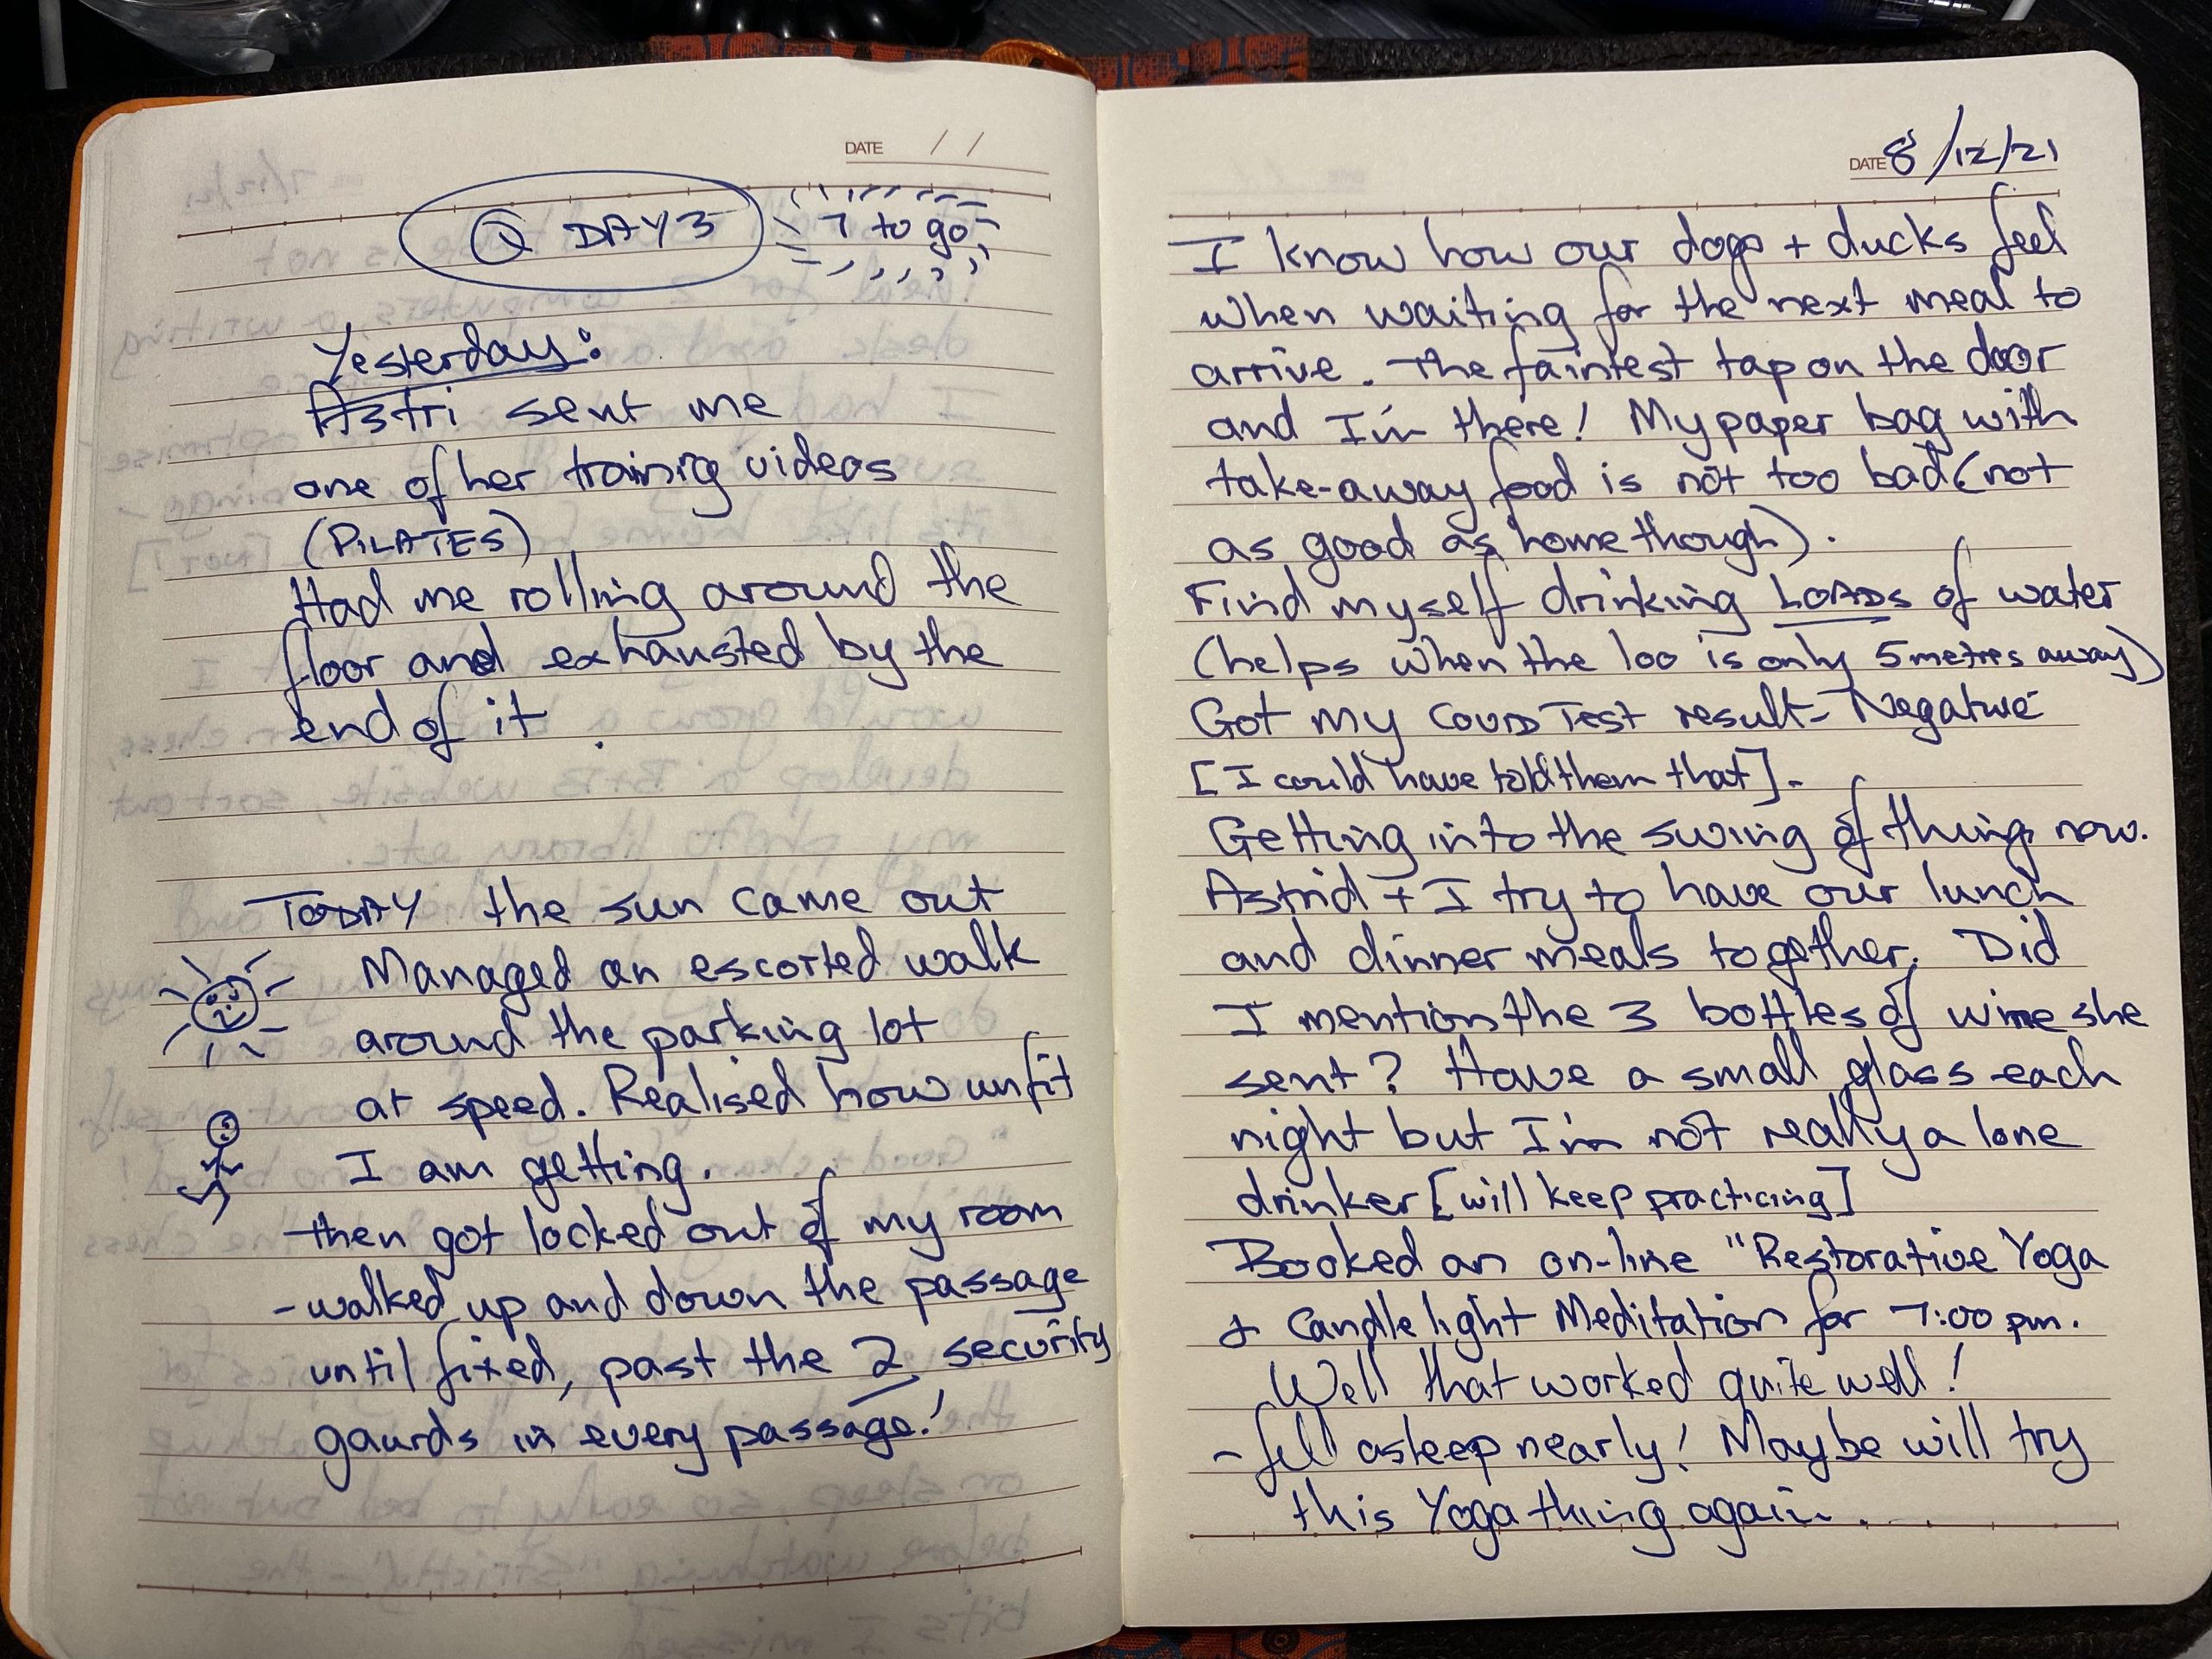 DATE / /
Q DAY 3 7 to go
Yesterday:
Astri sent me
one of her training videos
(PILATES)
Had me rolling around the
floor and exhausted by the
end of it.
TODAY the sun came out
Managed an escorted walk
around the parking lot
at speed. Realised how unfit
I am getting.
then got locked out of my room
- walked up and down the passage
until fixed, past the 2 security
gaurds in every passage!
DATE 8/12/21
I know how our dogs + ducks feel
when waiting for the next meal to
arrive. The faintest tap on the door
and I'm there! My paper bag with
take-away food is not too bad (not
as good as home though).
Find myself drinking LOADS of water
(helps when the loo is only 5 metres away)
Got my COVID Test result - Negative
[I could have told them that].
Getting into the swing of things now.
Astrid + I try to have our lunch
and dinner meals together. Did
I mention the 3 bottles of wine she
sent? Have a small glass each
night but I'm not really a lone
drinker [will keep practicing]
Booked an on-line "Restorative Yoga
+ Candlelight Meditation for 7:00 pm.
Well that worked quite well!
- fell asleep nearly! Maybe will try
this Yoga thing again...